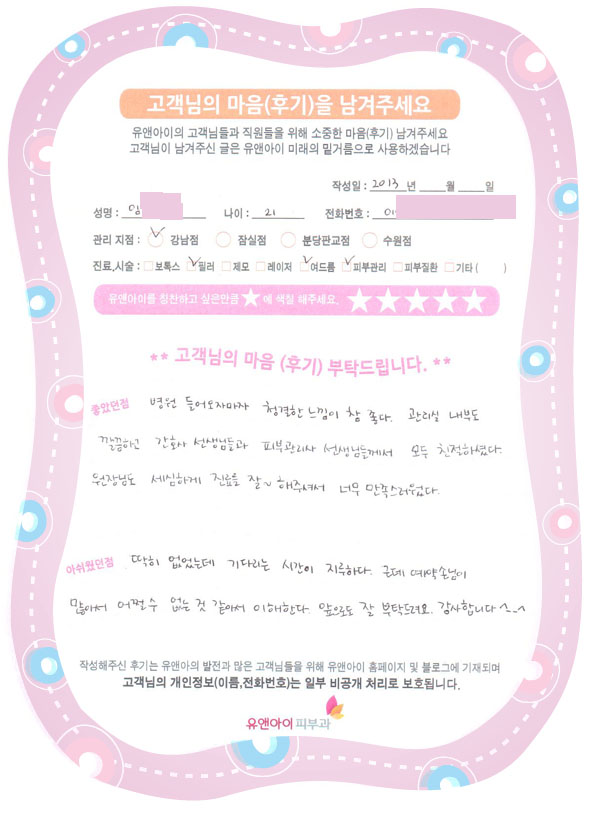 고객님의 마음(후기)을 남겨주세요
유앤아이의 고객님들과 직원들을 위해 소중한 마음(후기) 남겨주세요
고객님이 남겨주신 글은 유앤아이 미래의 밑거름으로 사용하겠습니다
작성일 : 2013 년 월 일
성명 : 임 나이 : 21 전화번호 : 01
관리 지점 : 강남점 잠실점 분당판교점 수원점
진료,시술 : 보톡스 필러 제모 레이저 여드름 피부관리 피부질환 기타 ( )
유앤아이를 칭찬하고 싶은만큼 ★에 색칠 해주세요. ★★★★★
** 고객님의 마음 (후기) 부탁드립니다. **
좋았던점 병원 들어오자마자 청결한 느낌이 참 좋다. 관리실 내부도
깔끔하고 간호사 선생님들과 피부관리사 선생님들께서 모두 친적하셨다.
원장님도 세심하게 진료를 잘~ 해주셔서 너무 만족스러웠다.
아쉬웠던점 딱히 없었는데 기다리는 시간이 지루하다. 근데 예약손님이
많아서 어쩔 수 없는 것 같아서 이해한다. 앞으로도 잘 부탁드려요. 감사합니다 ^_^
작성해주신 후기는 유앤아의 발전과 많은 고객님들을 위해 유앤아이 홈페이지 및 블로그에 기재되며
고객님의 개인정보(이름,전화번호)는 일부 비공개 처리로 보호됩니다.
유앤아이 피부과